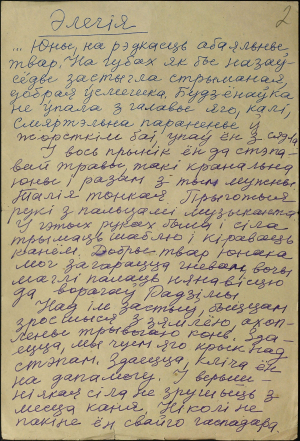 2
Элегія
... Юны, на рэдкасць абаяльны
твар. На губах як бы назаў-
сёды застыгла стрыманая,
добрая усмешка. Будзёнаўка
не упала з галавы яго, калі,
смяртэльна паранены ў
жорсткім баі, упаў ён з сядла
У вось прынік ён да стэпа-
вай травы, такі кранальна
юны і разам з тым мужны.
Талія тонкая. Прыгожыя
рукі з пальцамі музыканта.
У гэтых руках была і сіла
трымаць шаблю і кіраваць
канём. Добры твар юнака
мог загарацца гневам, вочы
маглі палаць нянавісцю
да ворагаў Радзімы.
Над ім застыў, быццам
зросшыся з зямлёю, ахоп-
лены трывогаю конь. Зда-
ецца, мы чуем яго крык над
стэпам. Здаецца, кліча ён
на дапамогу. І
ніякая сіла не зрушыць з
месца каня. Ніколі не
пакіне ён свайго гаспадара.